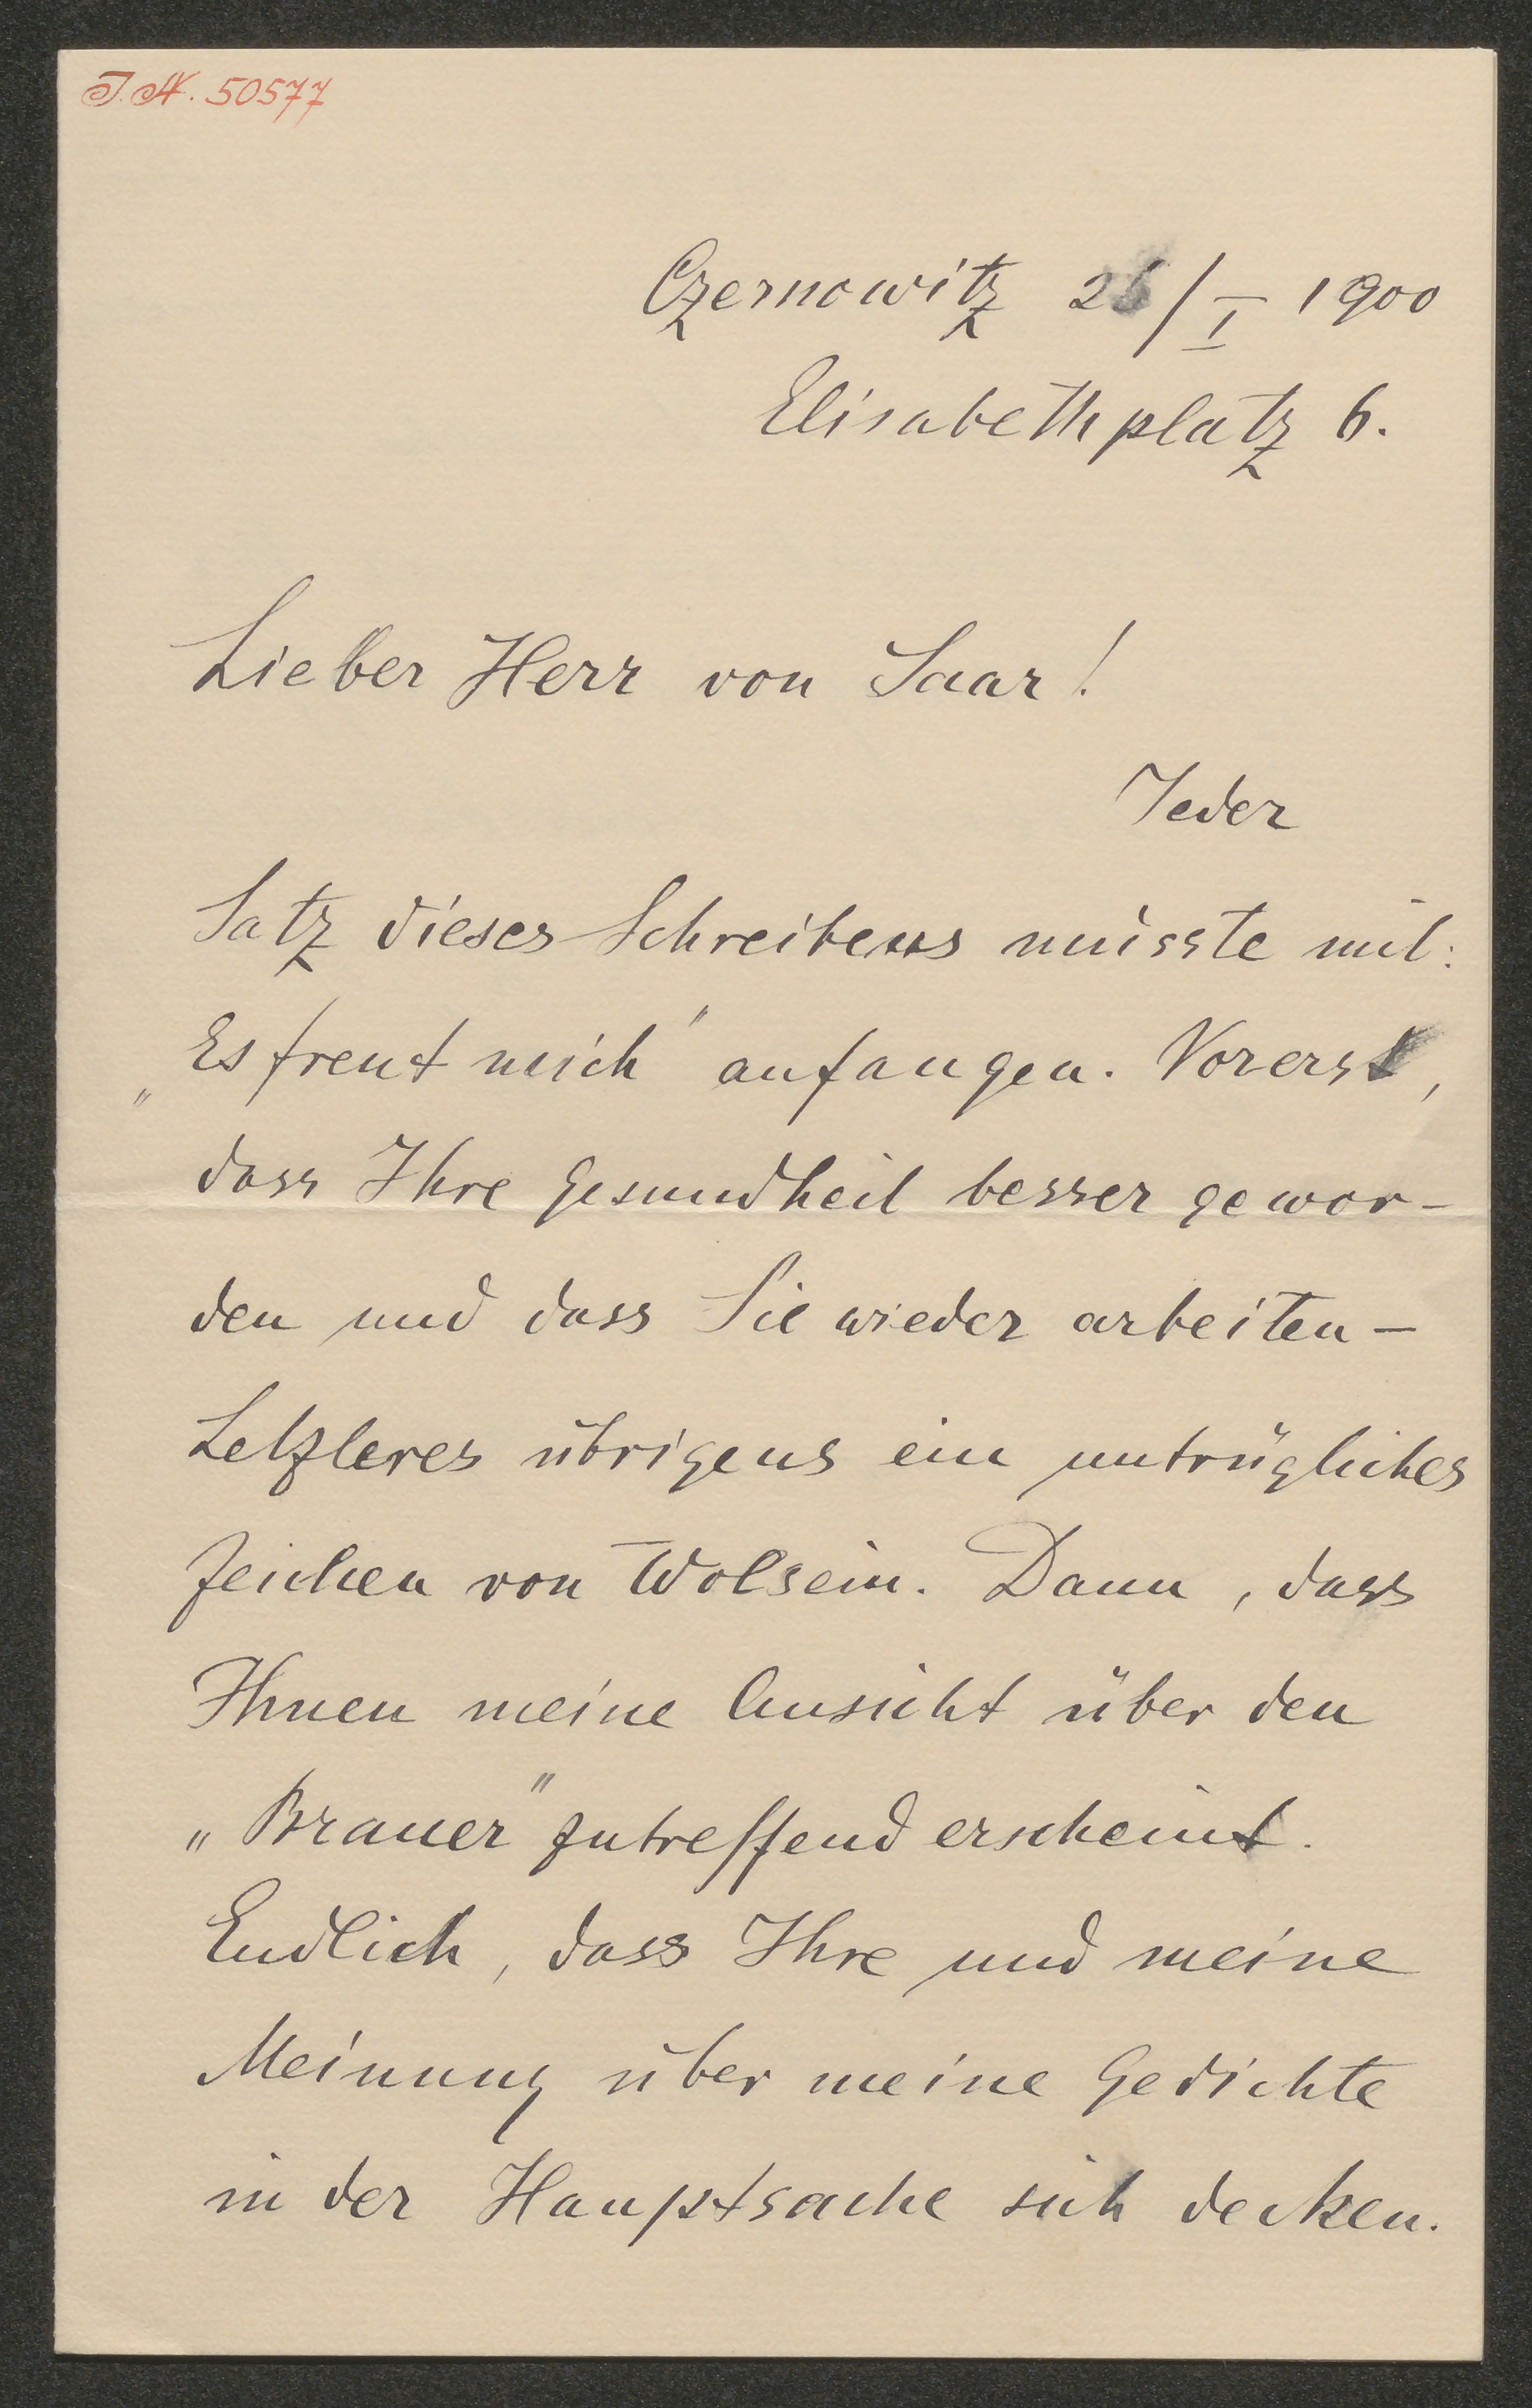 I.N. 50577
Czernowitz 26/I 1900
Elisabethplatz 6.
Lieber Herr von Saar!
Jeder
Satz dieses Schreibens müsste mit:
„Es freut mich" anfangen. Vorerst,
dass Ihre Gesundheit besser gewor-
den und dass Sie wieder arbeiten –
Letzteres übrigens ein untrügliches
Zeichen von Wolsein. Dann, dass
Ihnen meine Ansicht über den
„Brauer" zutreffend erscheint.
Endlich, dass Ihre und meine
Meinung über meine Gedichte
in der Hauptsache sich decken.